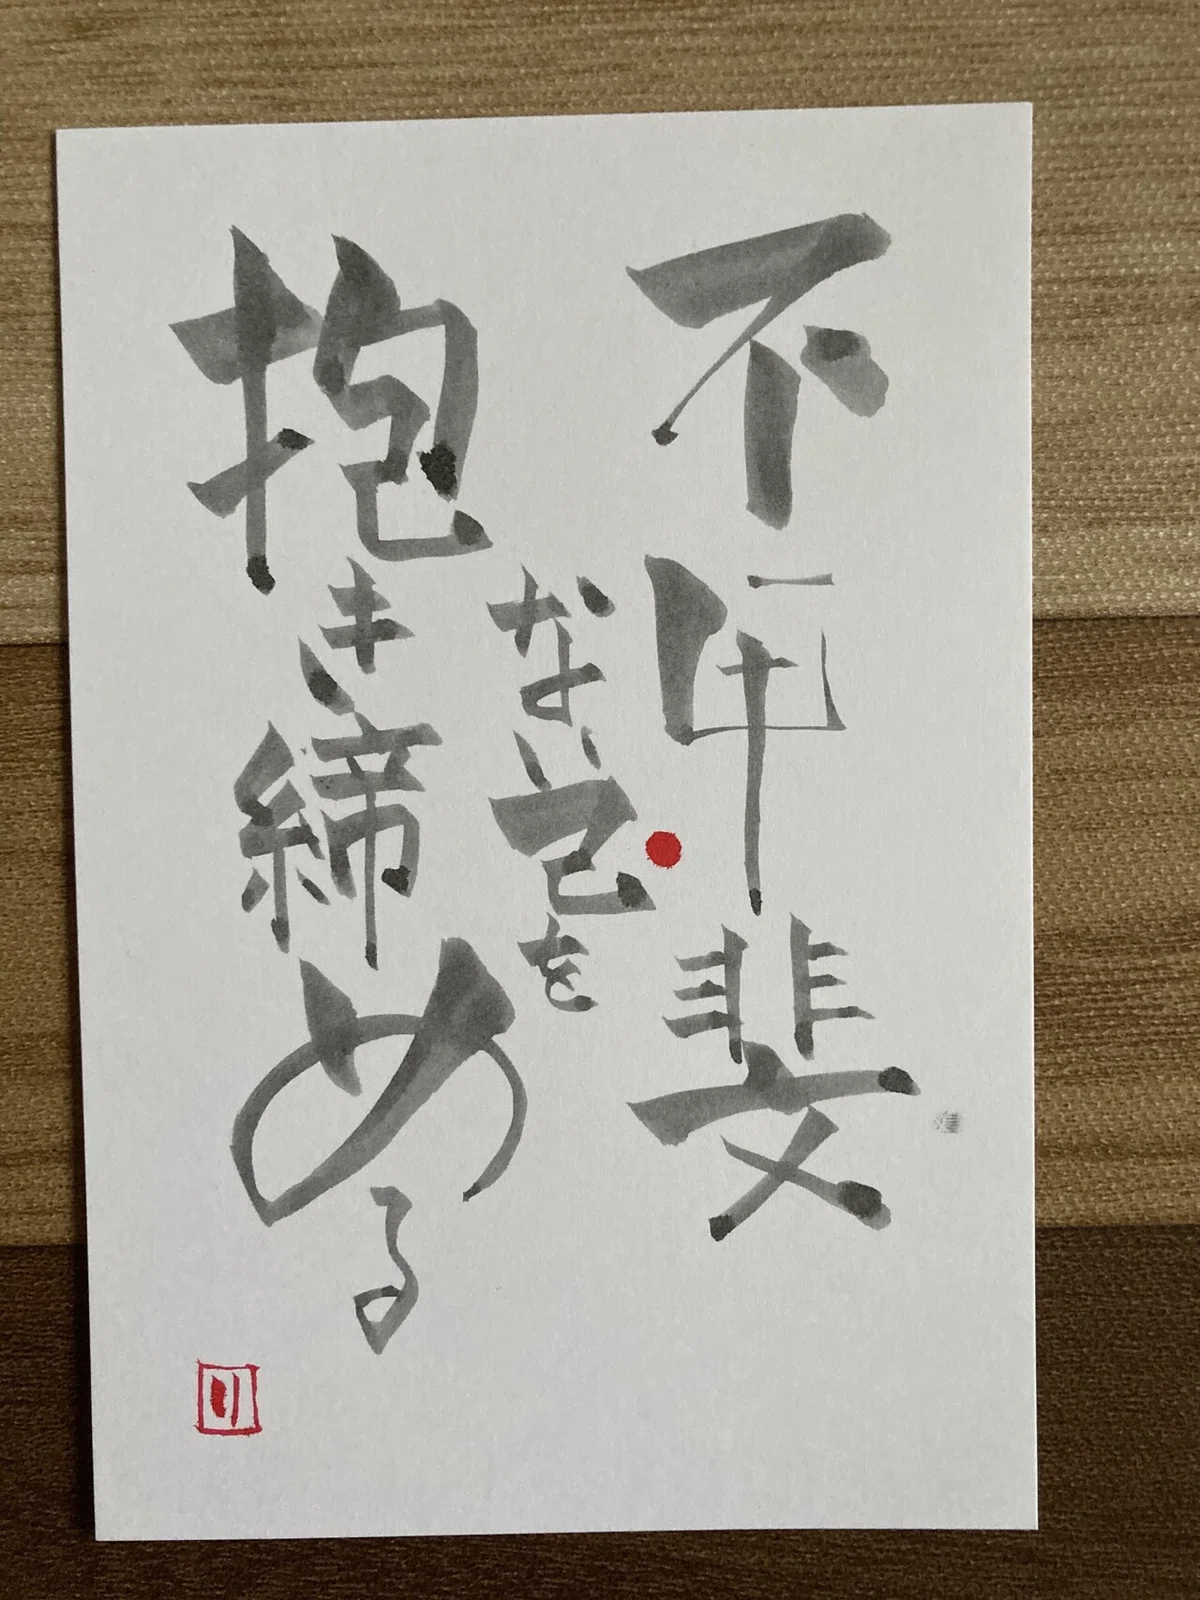 不甲斐
ない己を
抱き締める
リ